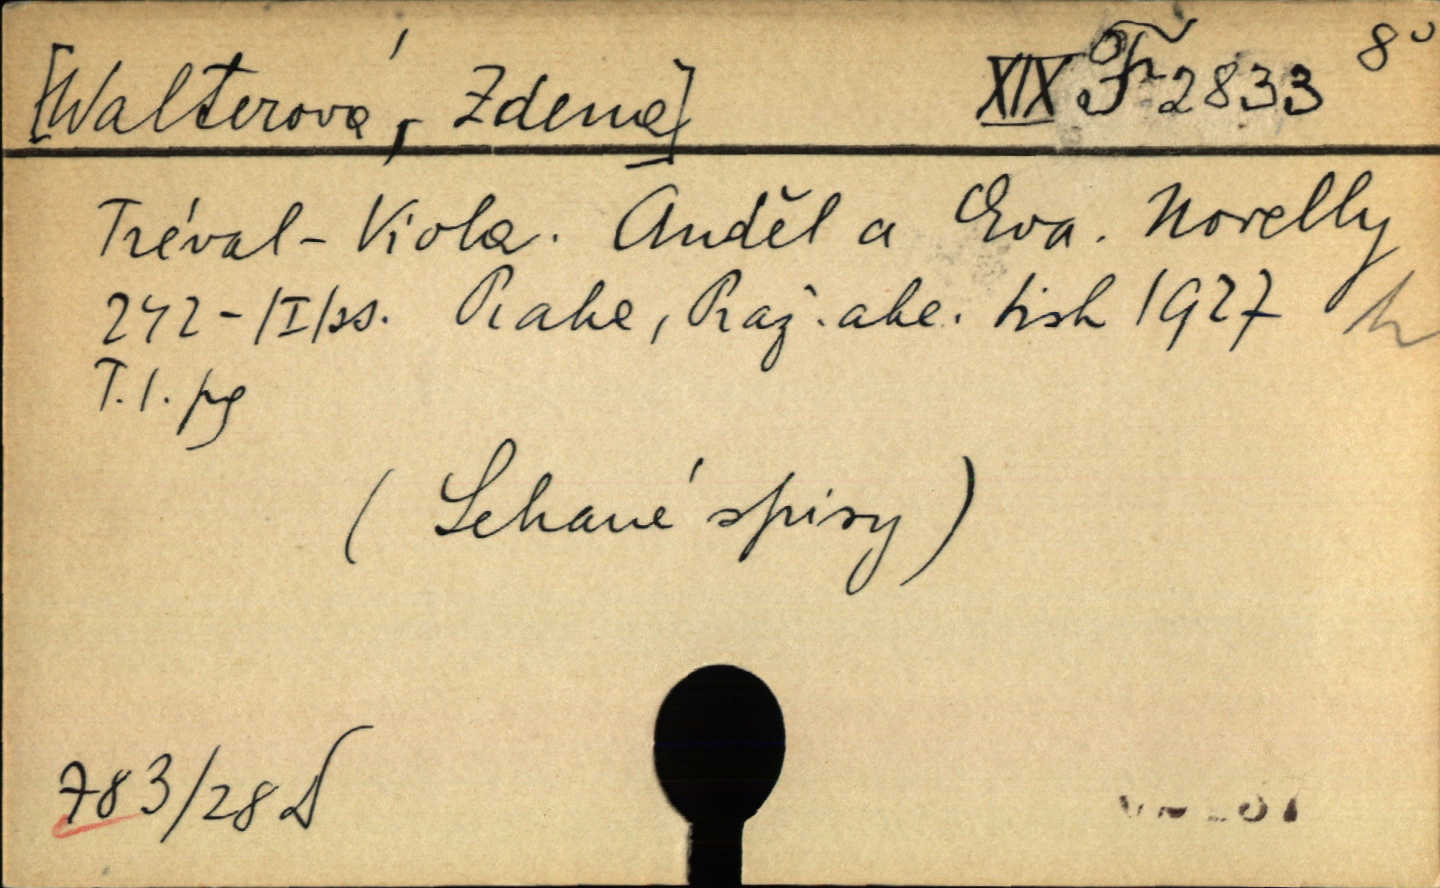 [Walterová, Zdena]
XIX F 2833 8°
Tréval-Viola. Anděl a Eva. Novelly
242-/I/ss. Praha, Praž. akc. tisk 1927
T. 1. pg
(Sebrané spisy)
783/28 D